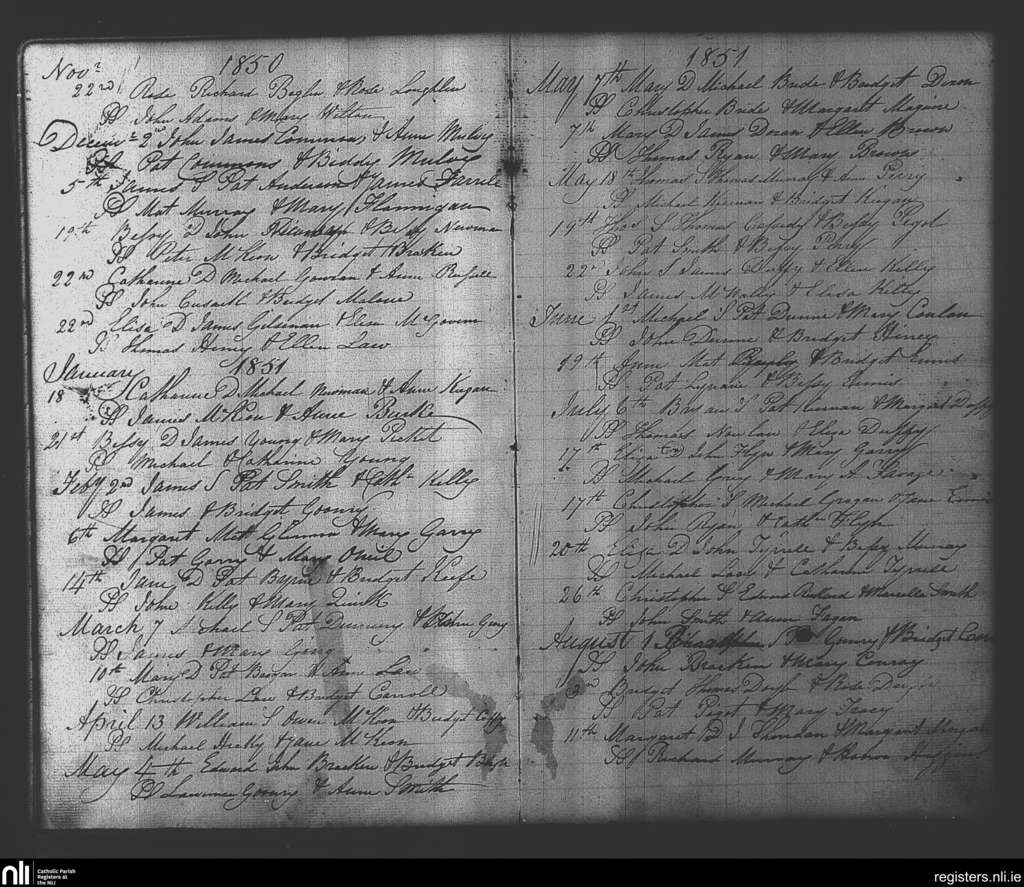 Novr 1850
22nd Rose Richard Bagln & Rose Loughlin
PS John Adams & Mary Wilton
Decembr 2nd John James Commons & Anne Mulvy
PS Pat Commons & Biddy Mulvy
5th James S Pat Anderson & James Farrele
PS Mat Murray & Mary Flannigan
19th Bessy D John Newman & Bessy Newman
PS Peter McKeon & Bridget Bracken
22nd Catharine D Michael Gowlan & Anne Russell
PS John Cusack & Bridget Malone
22nd Eliza D James Gilsenan & Elen McGovern
PS Thomas Henry & Ellen Law
January 1851
18 Catharine D Michael Newman & Anne Keegan
PS James McKeon & Anne Burke
21st Bessy D James Young & Mary Picket
PS Michael & Catharine Young
Feby 2nd James S Pat Smith & Cathn Kelly
PS James & Bridget Goonry
6th Margaret Matt Glennon & Mary Garry
PS Pat Garry & Mary Oniel
14th Jane D Pat Byrne & Bridget Keefe
PS John Kelly & Mary Quirk
March 7 Michael S Pat & Gerry
PS James & Mary Gerry
10th Mary D Pat Brogan & Anne Law
PS Christopher Law & Bridget Carroll
April 13 William S Owen McKeon & Bridgt Coffy
PS Michael Heehy & Jane McKeon
May 4th Edward John Bracken & Bridget
PS Lawrence Goonry & Anne Smith
1851
May 7th Mary D Michael Bride & Bridget Dixon
PS Christopher Bride & Margaret Maguire
7th Mary D James Doran & Ellen Brown
PS Thomas Ryan & Mary Browne
May 18th Thomas S Thomas Murray & Anne Perry
PS Michael Kiernan & Bridget Keegan
19th Thos S Thomas Cassidy & Bessy Pigot
PS Pat Smith & Bessy Perry
22nd John S James Duffy & Ellen Kelly
PS James McNally & Eliza Kelly
June 1st Michael S Pat Dunne & Mary Conlan
PS John Dunne & Bridget Heney
19th Anne Mat & Bridget Ennis
PS Pat & Bessy Ennis
July 6th Bryan S Pat Kiernan & Margaret Duffy
PS Thomas Nowlan & Eliza Duffy
17th Eliza D John Flyn & Mary Garry
PS Michael Grey & Mary A Savage
17th Christopher S Michael Grogan & Jane Ennis
PS John Ryan & Cathn Flyn
20th Eliza D John Tyrrele & Bessy Murray
PS Michael Lacy & Catharine Tyrrele
26th Christopher S Edward Richard & Marcella Smith
PS John Smith & Anne Fagan
August 1 S Pat Goonry & Bridget
PS John Bracken & Mary Conroy
3rd Bridget Thomas Doyle & Rose Doyle
PS Pat Pigot & Mary Tracy
11th Margaret D J Sheridan & Margaret
PS Richard Murray & Honor
nli
Catholic Parish
Registers at
the NLI
registers.nli.ie